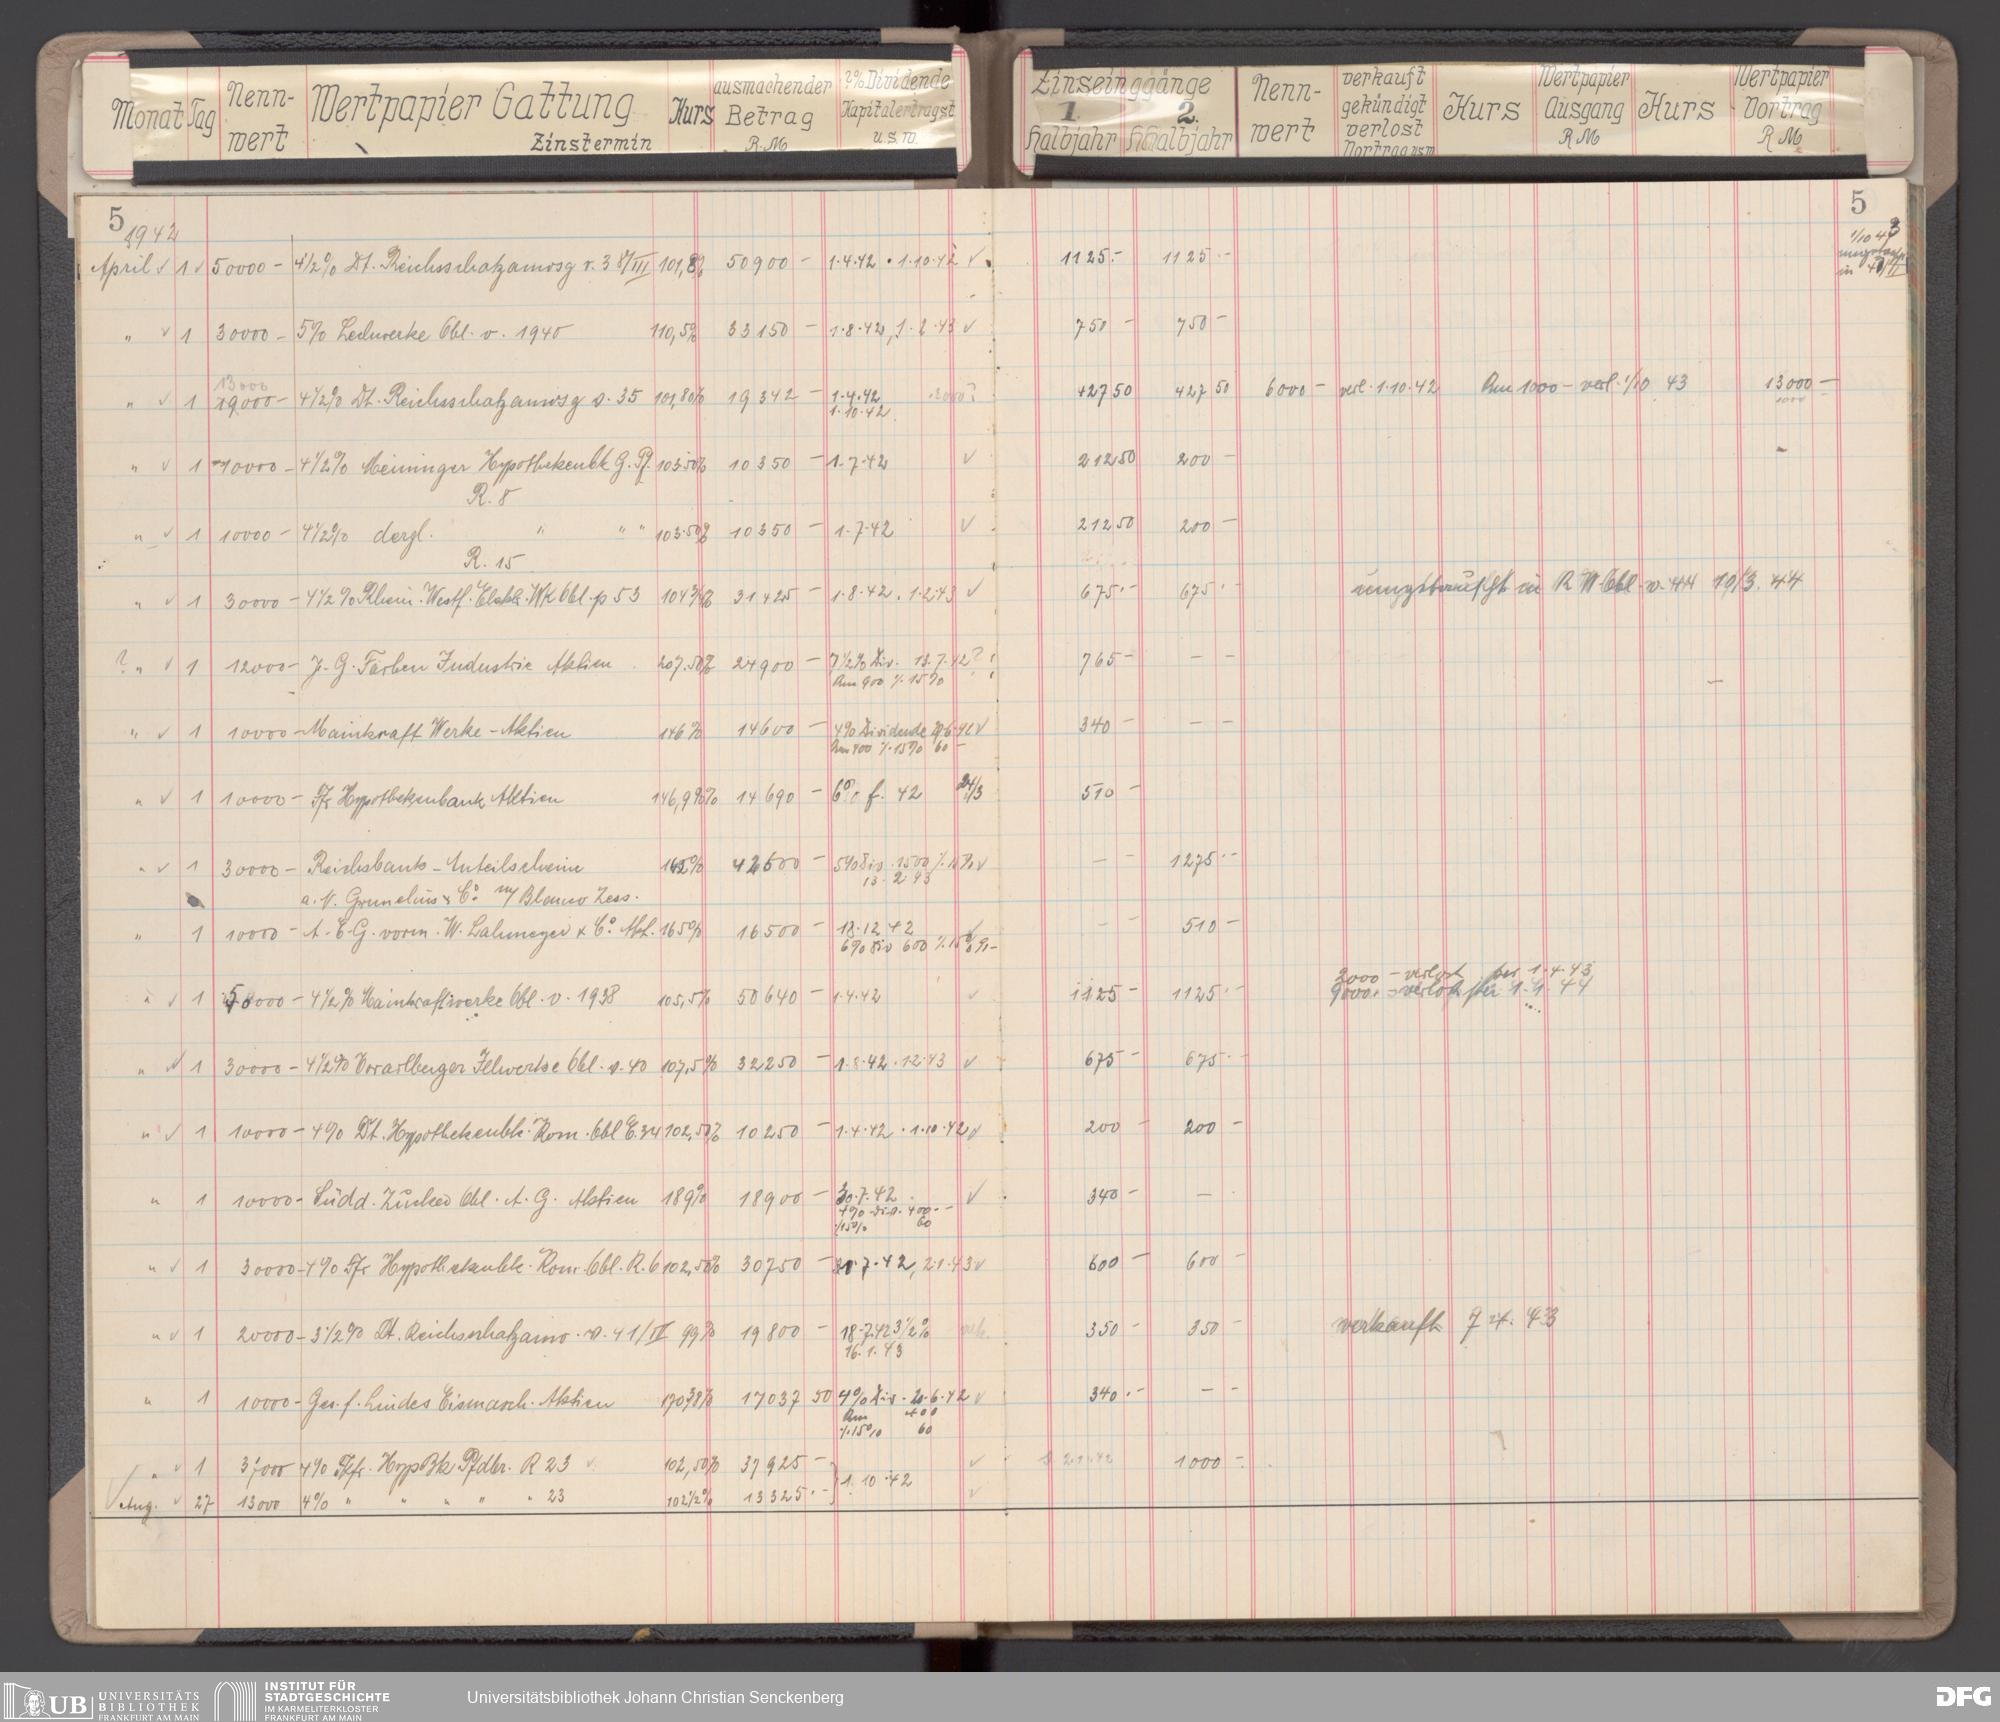 Monat Tag Nenn-wert Wertpapier Gattung Zinstermin Kurs ausmachender Betrag R.M Dividende Kapitalertragst u.s.w.
Zinseinggänge 1. Halbjahr 2. Halbjahr Nenn-wert verkauft gekündigt verlost Vortrag usw Kurs Wertpapier Ausgang RM Kurs Wertpapier Vortrag RM
5 5
1942
April 1 50000 - 4 1/2% Dt. Reichsschatzanwsg v. 38/III 101,8% 50900 - 1.4.42 . 1.10.42 1125.- 1125.- 1/10 43
" 1 30000 - 5% Lechwerke Obl. v. 1940 110,5% 33150 - 1.8.42, 1.2.43 750 - 750 -
13000
" 1 19000 - 4 1/2% Dt. Reichsschatzanwsg v. 35 101,80% 19342 - 1.4.42 427 50 427 50 6000 - verl. 1.10.42 Am 1000 - verl. 1/10 43 13000 -
1.10.42 1000
" 1 10000 - 4 1/2% Meininger Hypothekenbk G. Pf. 103.50% 10350 - 1.7.42 212 50 200 -
R. 8
" 1 10000 - 4 1/2% dergl. " " " 103.50% 10350 - 1.7.42 212 50 200 -
R. 15
" 1 30000 - 4 1/2% Rhein. Westf. Elektr. WK Obl. p 53 104 3/4% 31425 - 1.8.42 . 1.2.43 675.- 675.- umgetauscht in RW Obl. v. 44 10/3. 44
? " 1 12000 - J. G. Farben Industrie Aktien 207.50% 24900 - 7 1/2% Div. 13.7.42 ? 765 - - -
Am 900 ./. 15%
" 1 10000 - Mainkraft Werke - Aktien 146% 14600 - 4% Dividende 340 - - -
Am 400 ./. 15% 60 -
" 1 10000 - Ffr Hypothekenbank Aktien 146,9% 14690 - 6% f. 42 24/3 510 -
" 1 30000 - Reichsbank - Anteilscheine 42600 - 5% Div. 1500 ./. 15% - - 1275.-
a. N. Grunelius & Co. m/ Blanco Zess. 13. 2 43
" 1 10000 - A. E. G. vorm. W. Lahmeyer & Co. Akt. 165% 16500 - 18.12.42 - - 510 -
6% Div 600 ./. 15%
2000 - verlost per 1.4.43
" 1 4 1/2% Mainkraftwerke Obl. v. 1938 105,5% 50640 - 1.4.42 1125 - 1125.- 9000.- verlost per 1.4.44
" 1 30000 - 4 1/2% Vorarlberger Illwerke Obl. v. 40 107,5% 32250 - 1.8.42 . 1.2.43 675 - 675.-
" 1 10000 - 4% Dt. Hypothekenbk. Kom. Obl E. 34 102,50% 10250 - 1.4.42 . 1.10.42 200 - 200 -
" 1 10000 - Südd. Zucker A. G. Aktien 189% 18900 - 30.7.42 340 - -
4% Div. 400.-
./. 15% 60
" 1 30000 - 4% Ffr Hypothekenbk. Kom. Obl. R. 6 102,50% 30750 - 7.42, 2.1.43 600 - 600 -
" 1 20000 - 3 1/2% Dt. Reichsschatzanw. v. 41/IV 99% 19800 - 18.7.42 3 1/2% 350 - 350 - verkauft 7 4. 43
16. 1. 43
" 1 10000 - Ges. f. Lindes Eismasch. Aktien 17037 50 4% Div. 20.6.42 340.- - -
Am 400
./. 15% 60
" 1 37000 4% Ffr. Hyp Bk Pfdbr. R 23 102,50% 37925 - 1000 -.
1. 10 .42
Aug. 27 13000 4% " " " " " 23 102 1/2% 13325.-
UB UNIVERSITÄTS BIBLIOTHEK FRANKFURT AM MAIN
INSTITUT FÜR STADTGESCHICHTE IM KARMELITERKLOSTER FRANKFURT AM MAIN
Universitätsbibliothek Johann Christian Senckenberg
DFG